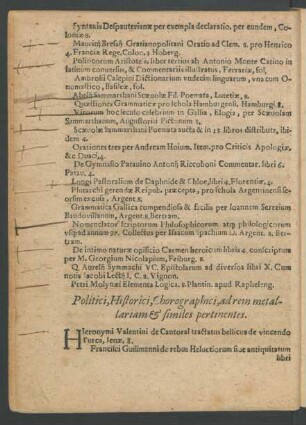 Syntaxis Despauterianæ per exempla declaratio. per eundem, Co-
loniæ 8.
Maurini Bresaŋ Gratianopolitani Oratio ad Clem. 8. pro Henrico
4. Franciæ Rege, Colon, 8 Hoberg.
Politicorum Aristote is libertertius ab Antonio Monte Catino in
latinum conuersus, & Commentariis illustratus, Ferrariæ, fol,
Ambrosii Calepini Dictionarium vndecim linguarum, vna cum O-
nomastico, Basileæ, fol.
Abelii Sammarthani Scæuolæ Fil. Poemata, Lutetiæ, 8.
Quæstiones Grammaticæ pro schola Hamburgensi, Hamburgi 8.
Virorum hoc seculo celebrium in Gallia, Elogia, per Scæuolam
Sammarthanum, Augustoriti Pictonum 8.
Scæuolæ Sammarthani Poemata aucta & in 15 libros distributa, ibi-
dem 4.
Orationes tres per Andream Hoium. Item, pro Criticis Apologiæ,
& c Duaci, 4.
De Gymnasio Patauino Antonij Riccoboni Commentar. libri 6.
Patau. 4.
Longi Pastoralium de Daphnide & Chloe, libri 4. Florentiæ, 4.
Plutarchi gerendæ Reipub. præcepta, pro schola Argentinensi se-
orsim excusa, Argent. 8.
Grammatica Gallica compendiosa & facilis per Ioannem Serreium
Badouillanum, Argent, 8, bertram.
Nomenclator scriptorum Philosophicorum. atq; philologicorum
vsq; ad annum 97. Collectus per Israëlem spachium I.D. Argent. 8. Ber-
tram.
De intimo naturæ opificio Carmen heroicum libris 4. conscriptum
per M. Georgium Nicolaprium, Friburg. 8.
Q. Aurelii Symmachi VC. Epistolarum ad diuersos libri X. Cum
notis Iacobi Lectii I, C. 8. Vignon.
Petri Molynæi Elementa Logica. 8. Plantin. apud Raphileng.
Politici, Historici, Chorographici, ad rem metal-
lariam & similes pertinentes.
Hieronymi Valentini de Cantoral tractatus bellicus de vincendo
Turca, senæ, 8.
Francisci Guillimanni de rebus Heluetiorum siue antiquitatum
libri